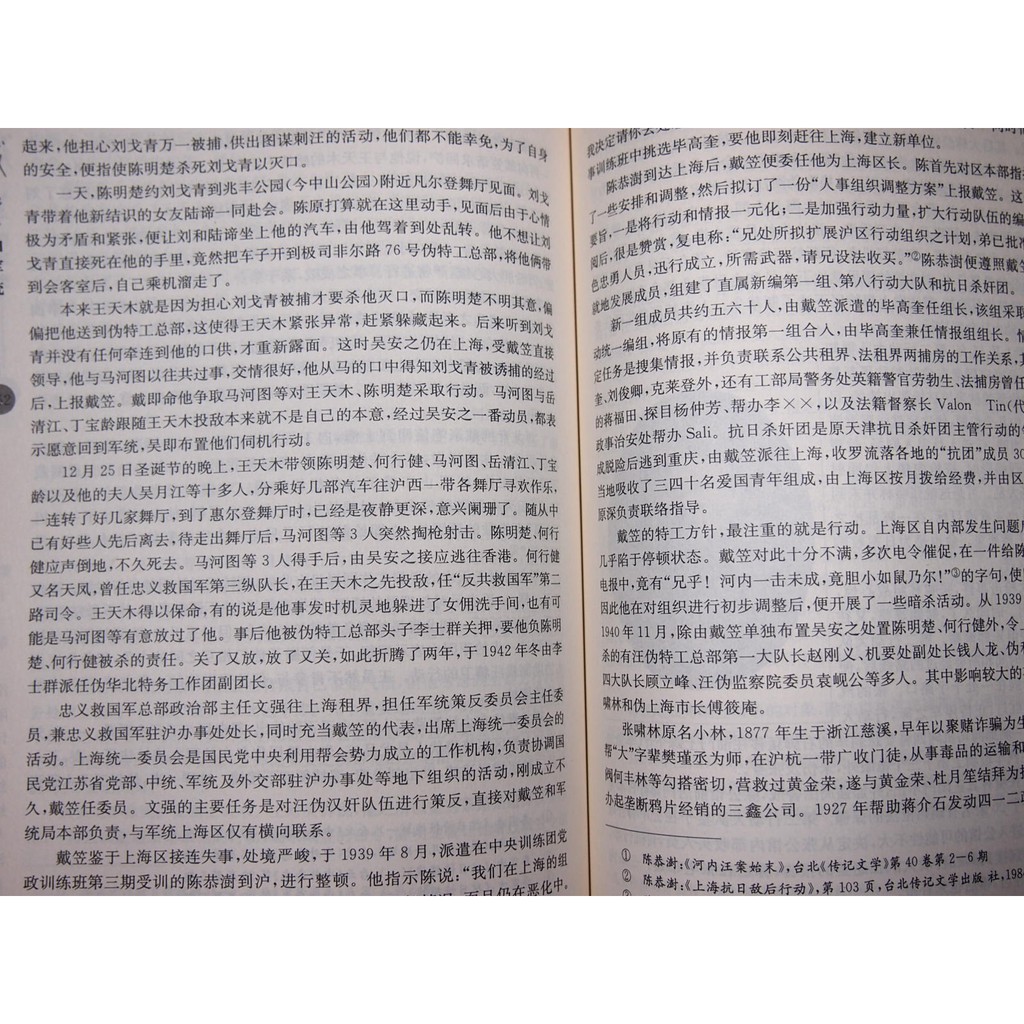 起来,他担心刘戈青万一被捕,供出图谋刺汪的活动,他们都不能幸免,为了自身
的安全,便指使陈明楚杀死刘戈青以灭口。
一天,陈明楚约刘戈青到兆丰公园(今中山公园)附近凡尔登舞厅见面。刘戈
青带着他新结识的女友陆谛一同赴会。陈原打算就在这里动手,见面后由于心情
极为矛盾和紧张,便让刘和陆谛坐上他的汽车,由他驾着到处乱转。他不想让刘
戈青直接死在他的手里,竟然把车子开到极司非尔路76号伪特工总部,将他俩带
到会客室后,自己乘机溜走了。
本来王天木就是因为担心刘戈青被捕才要杀他灭口,而陈明楚不明其意,偏
偏把他送到伪特工总部,这使得王天木紧张异常,赶紧躲藏起来。后来听到刘戈
青并没有任何牵连到他的口供,才重新露面。这时吴安之仍在上海,受戴笠直接
领导,他与马河图以往共过事,交情很好,他从马的口中得知刘戈青被诱捕的经过
后,上报戴笠。戴即命他争取马河图等对王天木、陈明楚采取行动。马河图与岳
清江、丁宝龄跟随王天木投敌本来就不是自己的本意,经过吴安之一番动员,都表
示愿意回到军统,吴即布置他们伺机行动。
12月25日圣诞节的晚上,王天木带领陈明楚、何行健、马河图、岳清江、丁宝
龄以及他的夫人吴月江等十多人,分乘好几部汽车往沪西一带各舞厅寻欢作乐,
一连转了好几家舞厅,到了惠尔登舞厅时,已经是夜静更深,意兴阑珊了。随从中
已有好些人先后离去,待走出舞厅后,马河图等3人突然掏枪射击。陈明楚、何行
健应声倒地,不久死去。马河图等3人得手后,由吴安之接应逃往香港。何行健
又名天凤,曾任忠义救国军第三纵队长,在王天木之先投敌,任“反共救国军”第二
路司令。王天木得以保命,有的说是他事发时机灵地躲进了女佣洗手间,也有可
能是马河图等有意放过了他。事后他被伪特工总部头子李士群关押,要他负陈明
楚、何行健被杀的责任。关了又放,放了又关,如此折腾了两年,于1942年冬由李
士群派任伪华北特务工作团副团长。
忠义救国军总部政治部主任文强往上海租界,担任军统策反委员会主任委
员,兼忠义救国军驻沪办事处处长,同时充当戴笠的代表,出席上海统一委员会的
活动。上海统一委员会是国民党中央利用帮会势力成立的工作机构,负责协调国
民党江苏省党部、中统、军统及外交部驻沪办事处等地下组织的活动,刚成立不
久,戴笠任委员。文强的主要任务是对汪伪汉奸队伍进行策反,直接对戴笠和军
统局本部负责,与军统上海区仅有横向联系。
戴笠鉴于上海区接连失事,处境严峻,于1939年8月,派遣在中央训练团党
政训练班第三期受训的陈恭澍到沪,进行整顿。他指示陈说:“我们在上海的组
而且仍在恶化中,
我决定请你去
事训练班中挑选毕高奎,要他即刻赶往上海,建立新单位。
陈恭澍到达上海后,戴笠便委任他为上海区长。陈首先对区本部指
了一些安排和调整,然后拟订了一份“人事组织调整方案”上报戴笠。这
要旨,一是将行动和情报一元化;二是加强行动力量,扩大行动队伍的编
阅后,很是赞赏,复电称:“兄处所拟扩展沪区行动组织之计划,弟已批准
色忠勇人员,迅行成立,所需武器,请兄设法收买。”②陈恭澍便遵照戴笠
就地发展成员,组建了直属新编第一组、第八行动大队和抗日杀奸团。
新一组成员共约五六十人,由戴笠派遣的毕高奎任组长,该组采取
动统一编组,将原有的情报第一组合人,由毕高奎兼任情报组组长。
定任务是搜集情报,并负责联系公共租界、法租界两捕房的工作关系,
奎、刘俊卿,克莱登外,还有工部局警务处英籍警官劳勃生、法捕房曾任
的蒋福田、探目杨仲芳、帮办李××,以及法籍督察长 Valon Tin(代
政事治安处帮办 Sali。抗日杀奸团是原天津抗日杀奸团主管行动的
成脱险后逃到重庆,由戴笠派往上海,收罗流落各地的“抗团”成员30
当地吸收了三四十名爱国青年组成,由上海区按月拨给经费,并由区
原深负责联络指导。
戴笠的特工方针,最注重的就是行动。上海区自内部发生问题
几乎陷于停顿状态。戴笠对此十分不满,多次电令催促,在一件给陈
电报中,竟有“兄乎!河内一击未成,竟胆小如鼠乃尔!”③的字句,使
因此他在对组织进行初步调整后,便开展了一些暗杀活动。从1939
1940年11月,除由戴笠单独布置吴安之处置陈明楚、何行健外,令上
杀的有汪伪特工总部第一大队长赵刚义、机要处副处长钱人龙、伪
四大队长顾立峰、汪伪监察院委员袁岘公等多人。其中影响较大的
啸林和伪上海市长傅筱庵。
张啸林原名小林,1877年生于浙江慈溪,早年以聚赌诈骗为生
帮“大”字辈樊瑾丞为师,在沪杭一带广收门徒,从事毒品的运输和
阀何丰林等勾搭密切,营救过黄金荣,遂与黄金荣、杜月笙结拜为
办起垄断鸦片经销的三鑫公司。1927年帮助蒋介石发动四一二
① 陈恭澍:《河内汪案始末》,台北《传记文学》第40卷第2—6期
② 陈恭澍:《上海抗日敌后行动》,第103页,台北传记文学出版社,198